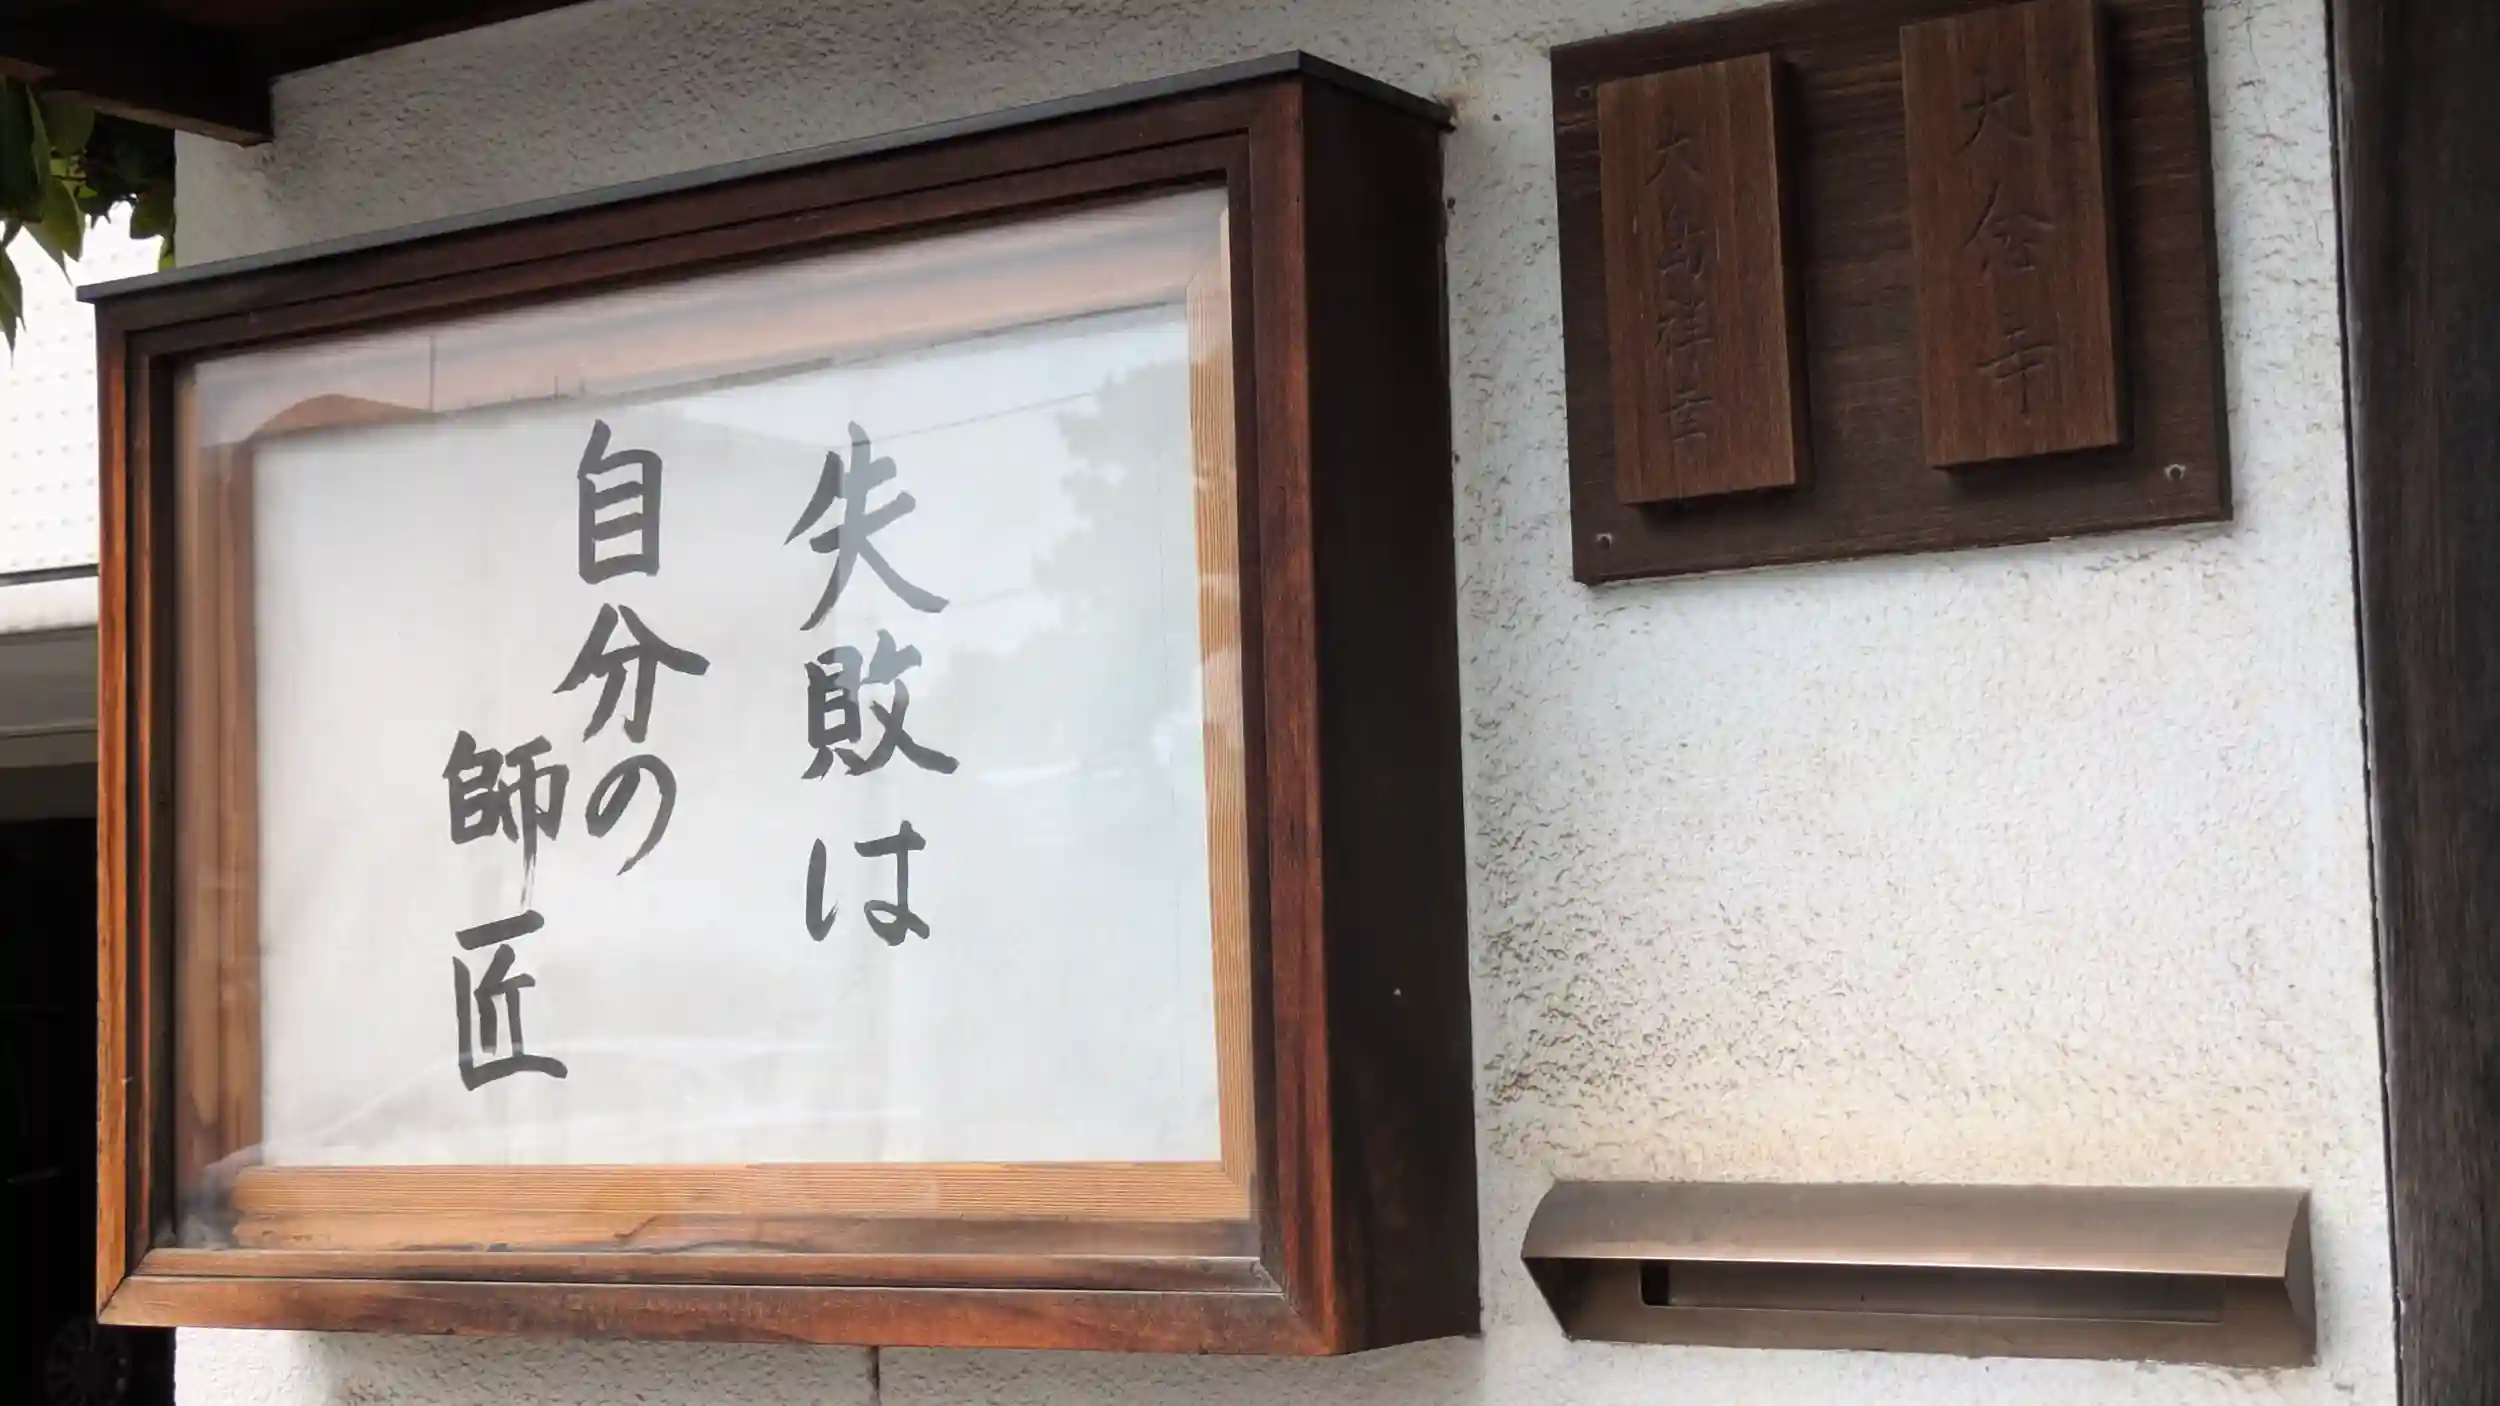 大念寺
大島祥幸
失敗は
自分の
師匠